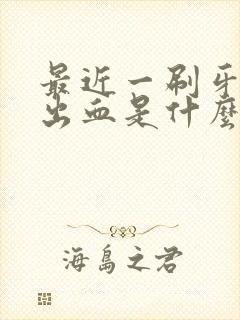 最近一刷牙
出血是什麼
海島之君